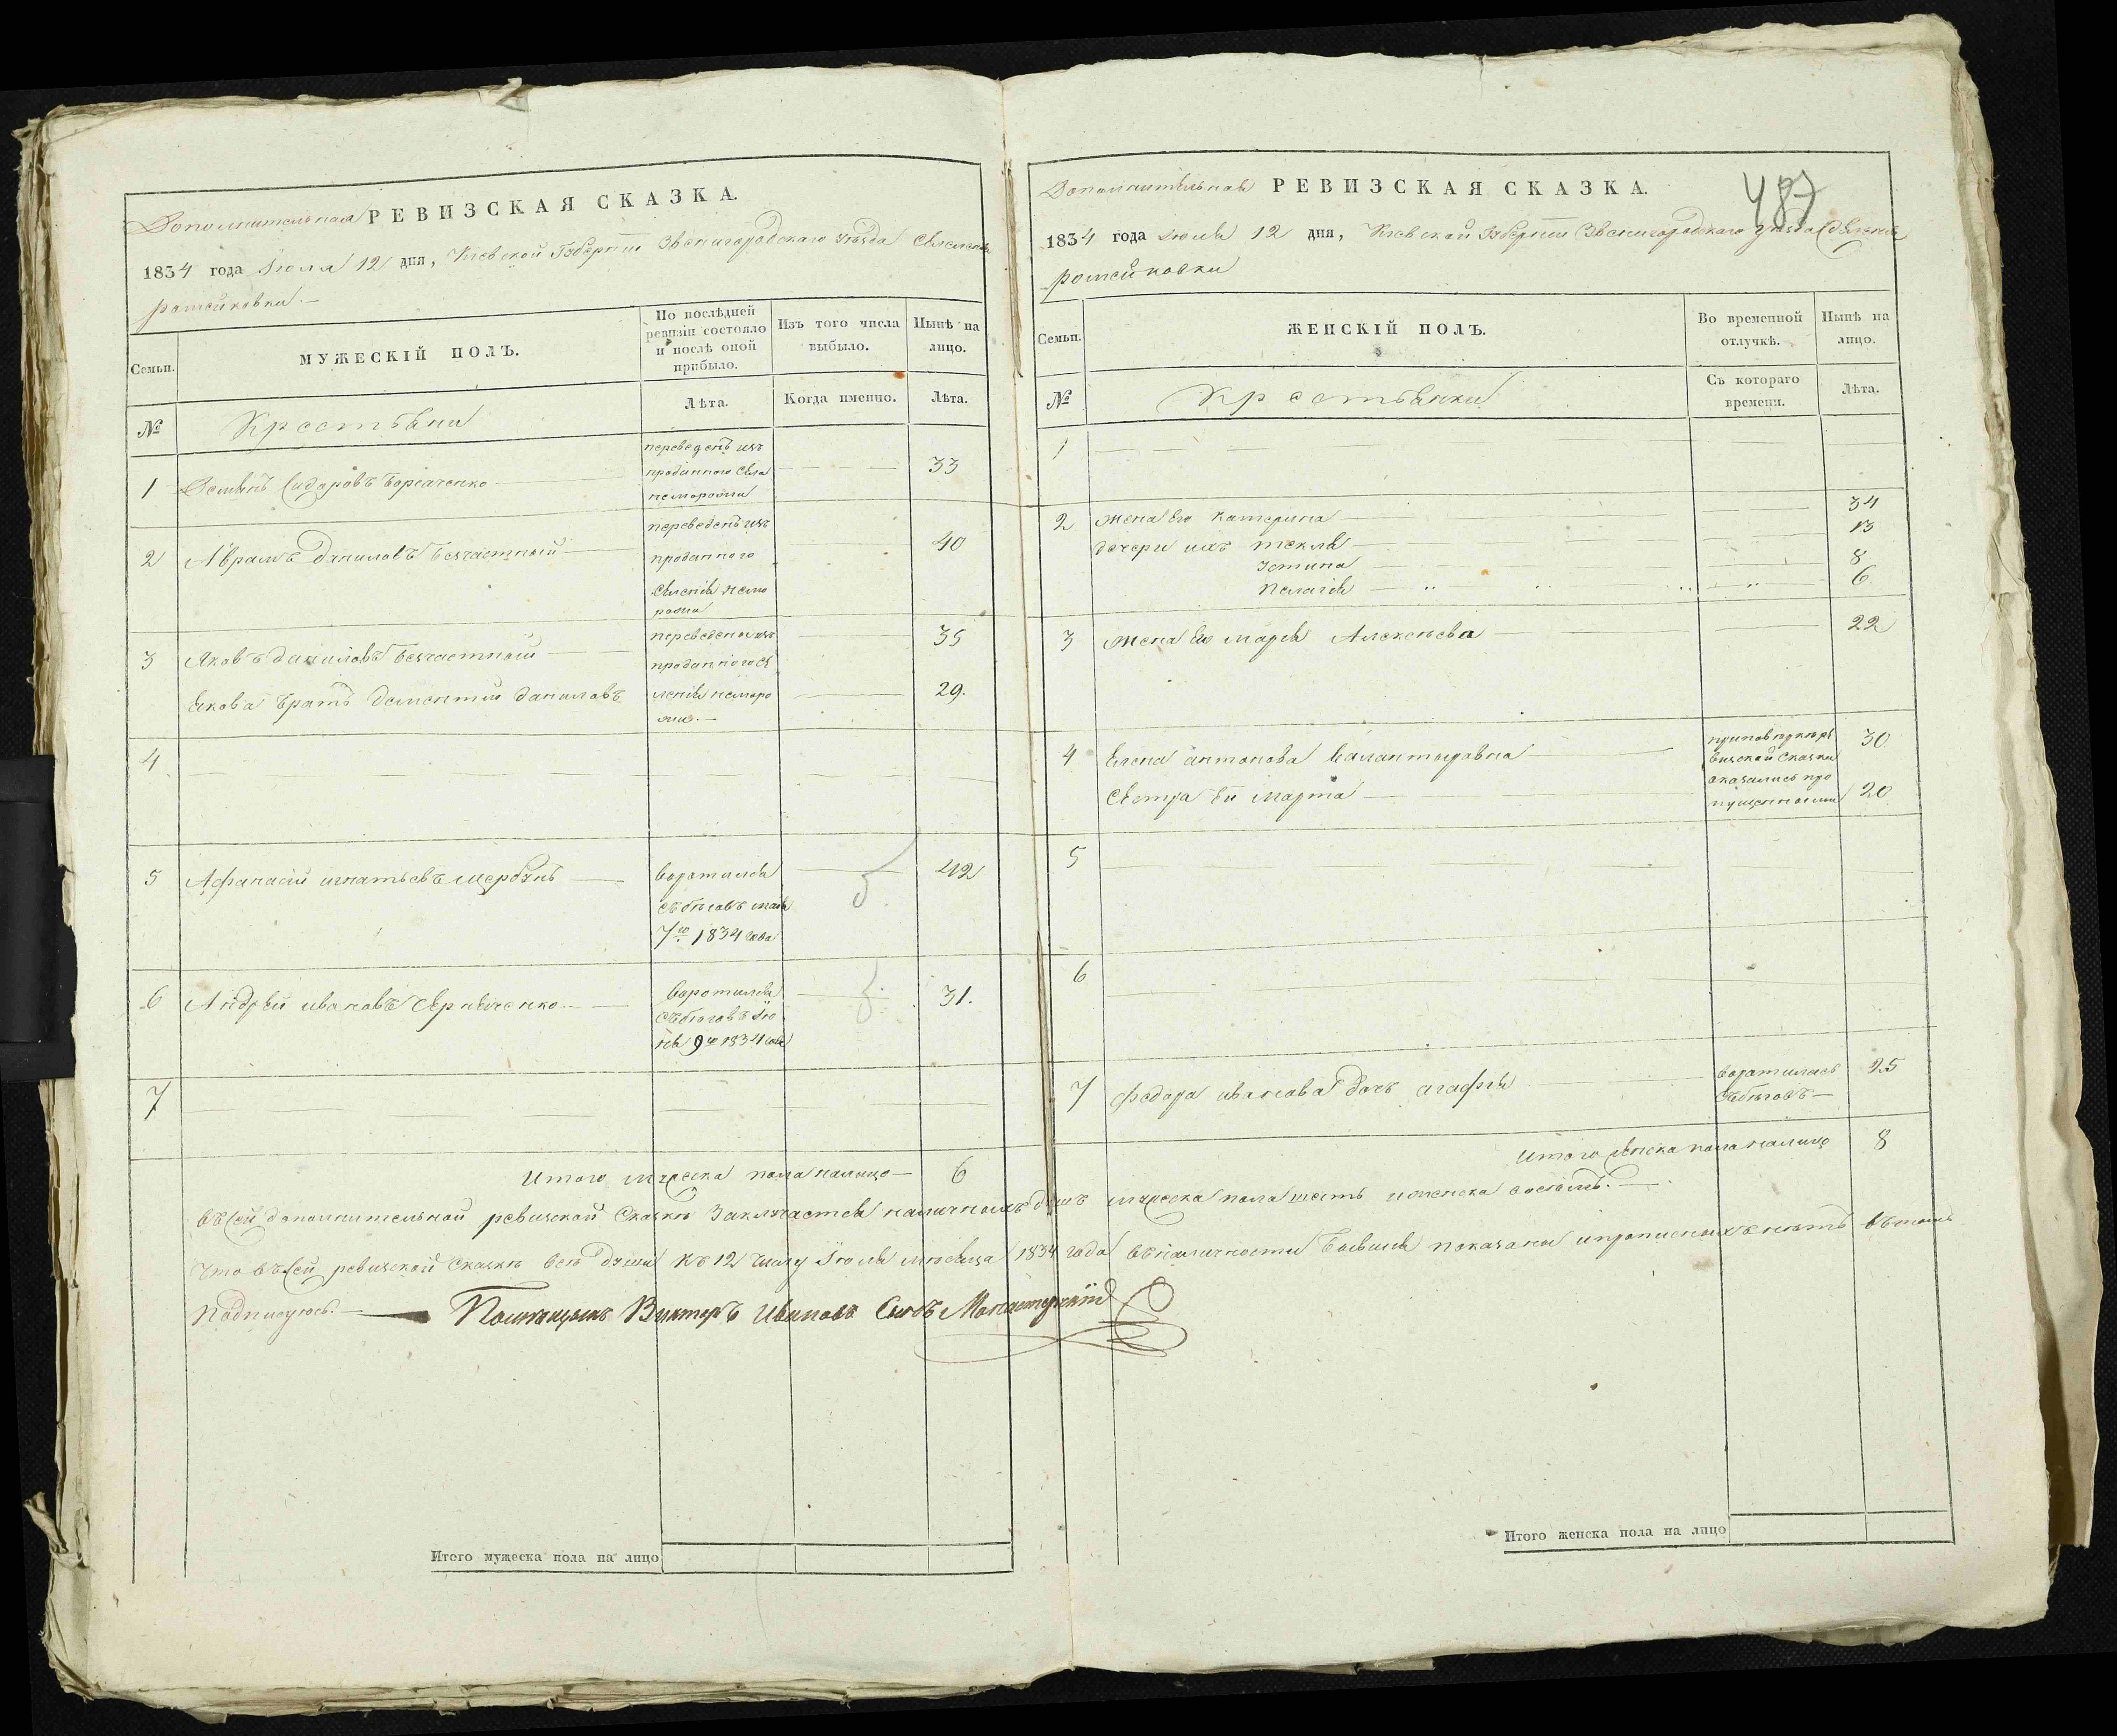 Дополнительная РЕВИЗСКАЯ СКАЗКА.
1834 года Июля 12 дня, Киевской Губернии Звенигородского уѣзда Селенія
ромейковки.—
Семьи.
МУЖЕСКІЙ ПОЛЪ.
По послѣдней
ревизіи состояло
и послѣ оной
прибыло.
Изъ того числа
выбыло.
Нынѣ на
лицо.
№
Крестьяни
Лѣта.
Когда именно.
Лѣта.
1 Сидоровъ
переведенъ изъ
проданного села
неморожи
33
2 Аврамъ даниловъ безчастный
переведенъ изъ
проданного
селенія немо
рожи
40
3 Яковъ даниловъ безчастный
переведены изъ
проданного се
35
Якова братъ дементий даниловъ
ленія неморо
жи.—
29.
4
5 Афанасий игнатьевъ щербунъ
воротился
съ бѣговъ мая
7го 1834 года
42
6 Андрей ивановъ
воротился
съ бѣговъ Ию
ня 9го 1834 года
31.
7
Итого мужеска пола налицо— 6
Итого мужеска пола на лицо
487
Дополнительная РЕВИЗСКАЯ СКАЗКА.
1834 года Июля 12 дня, Киевской Губернии Звенигородского уѣзда Селенія
ромейковки
Семьи.
ЖЕНСКІЙ ПОЛЪ.
Во временной
отлучкѣ.
Нынѣ на
лицо.
№
Крестьянки
Съ котораго
времени.
Лѣта.
1
2 жена его катерина 34
дочери ихъ текля 13
устина 8
пелагія 6
3 жена его марья Алексѣева 22
4 Елена антонова
30
Сестра Ей марта
оказались про
пущенными
20
5
6
7 федора иванова дочь агафія
воротилась
съ бѣговъ—
25
Итого женска пола налицо 8
въ сей дополнительной ревизской Сказкѣ Заключается наличныхъ душъ мужеска пола шесть и женска восемь.—
Что въ сей ревизской сказкѣ всѣ души къ 12 числу Июля мѣсяца 1834 года въ наличности бывшія показаны и прописныхъ нѣтъ въ томъ
Подписуюсь.— Помѣщикъ Викторъ Ивановъ Сынъ Монастырскій
Итого женска пола на лицо